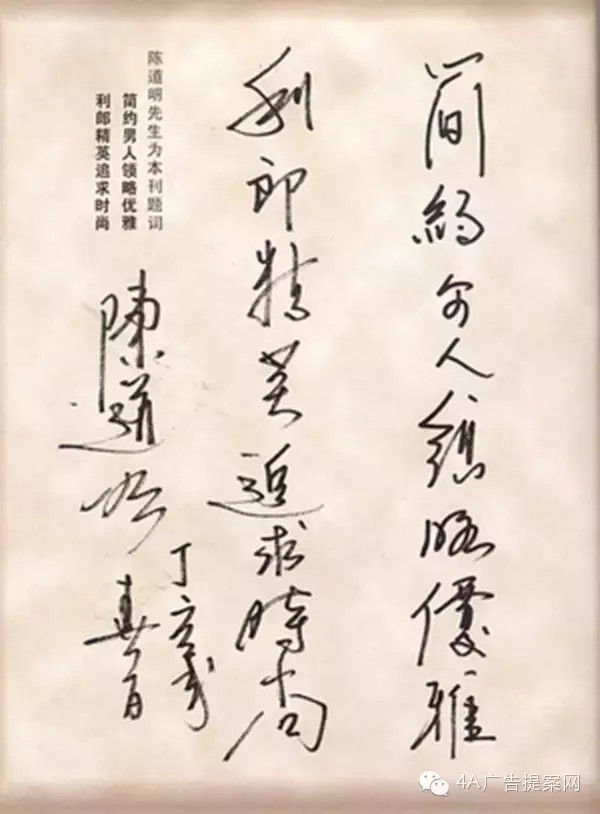 簡約男人領略優雅
利郎精英追求時尚
陈道明先生为本刊题词
简约男人领略优雅
利郎精英追求时尚
陳道明
丁亥歲
春月
4A广告提案网